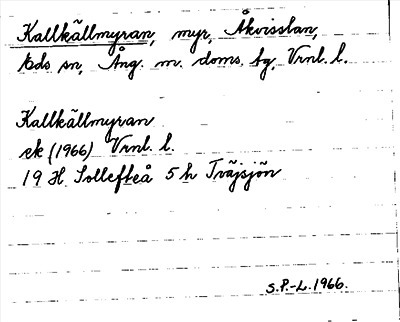 Kallkällmyran, myr, Åkvisslan,
Eds sn, Ång. m. doms. bg, Vrnl. l.
Kallkällmyran
ek (1966) Vrnl. l.
19 H Sollefteå 5 h Träjsjön
S.P.-L. 1966.